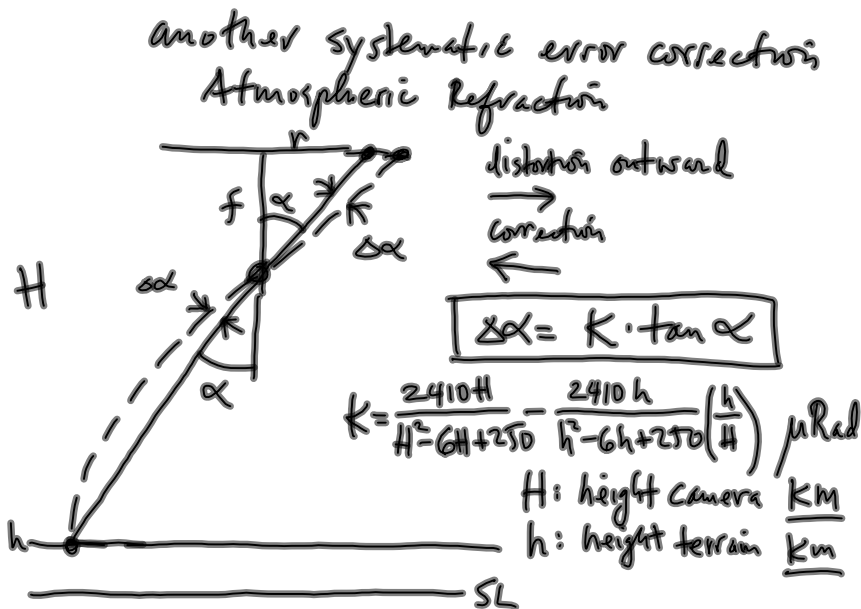 another systematic error correction
Atmospheric Refraction
r
distortion outward
f
α
correction
Δα
H
Δα
Δα = K · tan α
α
K = 2410H / H²-6H+250 - 2410h / h²-6h+250 (h/H) μRad
H: height camera km
h: height terrain km
h
SL